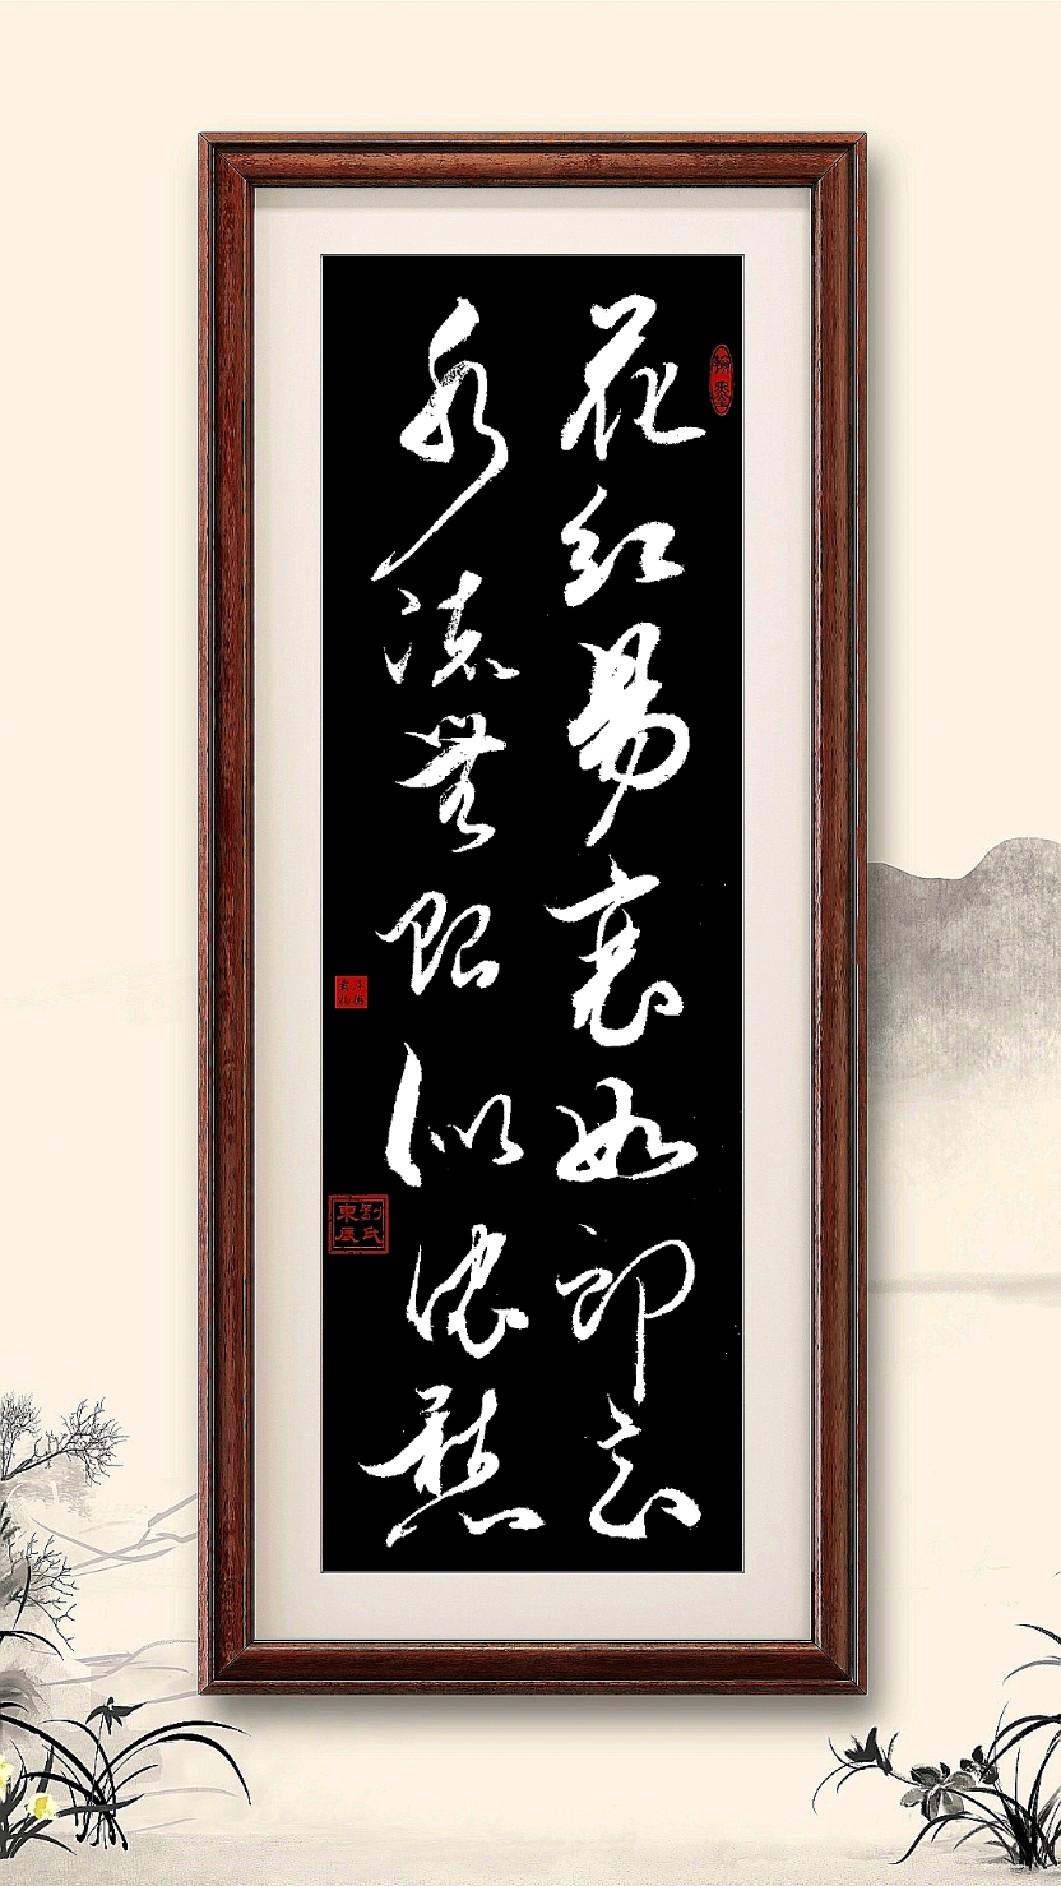 花红易衰似郎意
水流无限似侬愁
翰墨
劉氏東辰